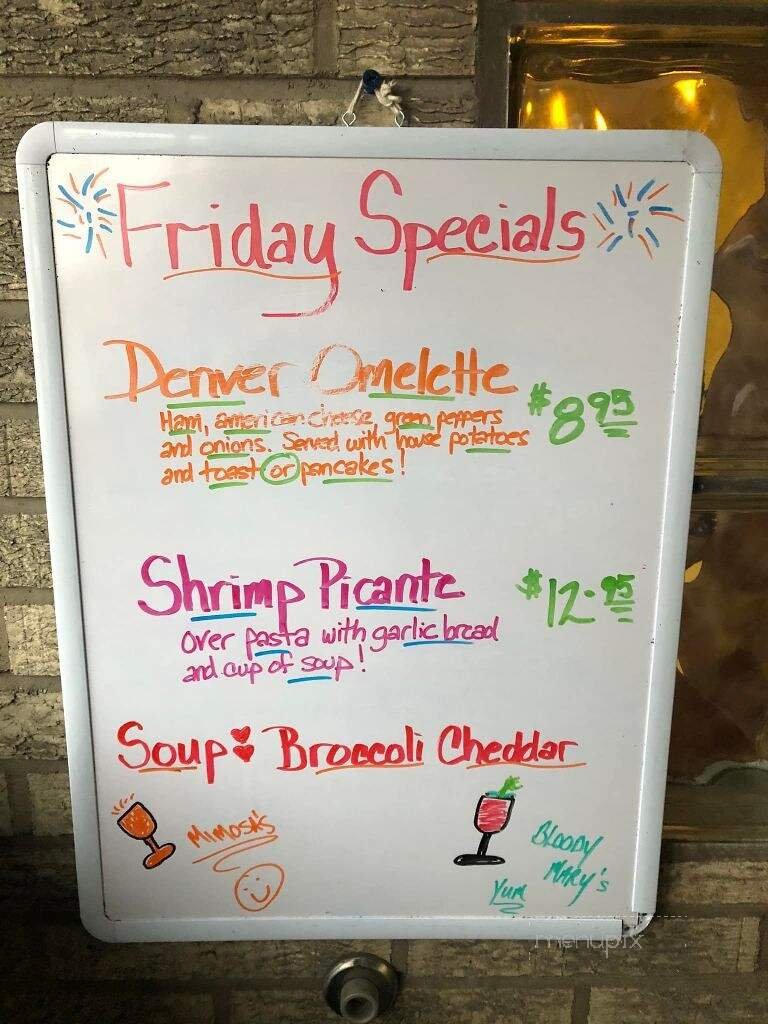 Friday Specials
Denver Omelette
$8.95
Ham, american cheese, green peppers
and onions. Served with house potatoes
and toast or pancakes!
Shrimp Picante
$12.95
over pasta with garlic bread
and cup of soup!
Soup: Broccoli Cheddar
MIMOSA'S
BLOODY
MARY'S
YUM
menupix